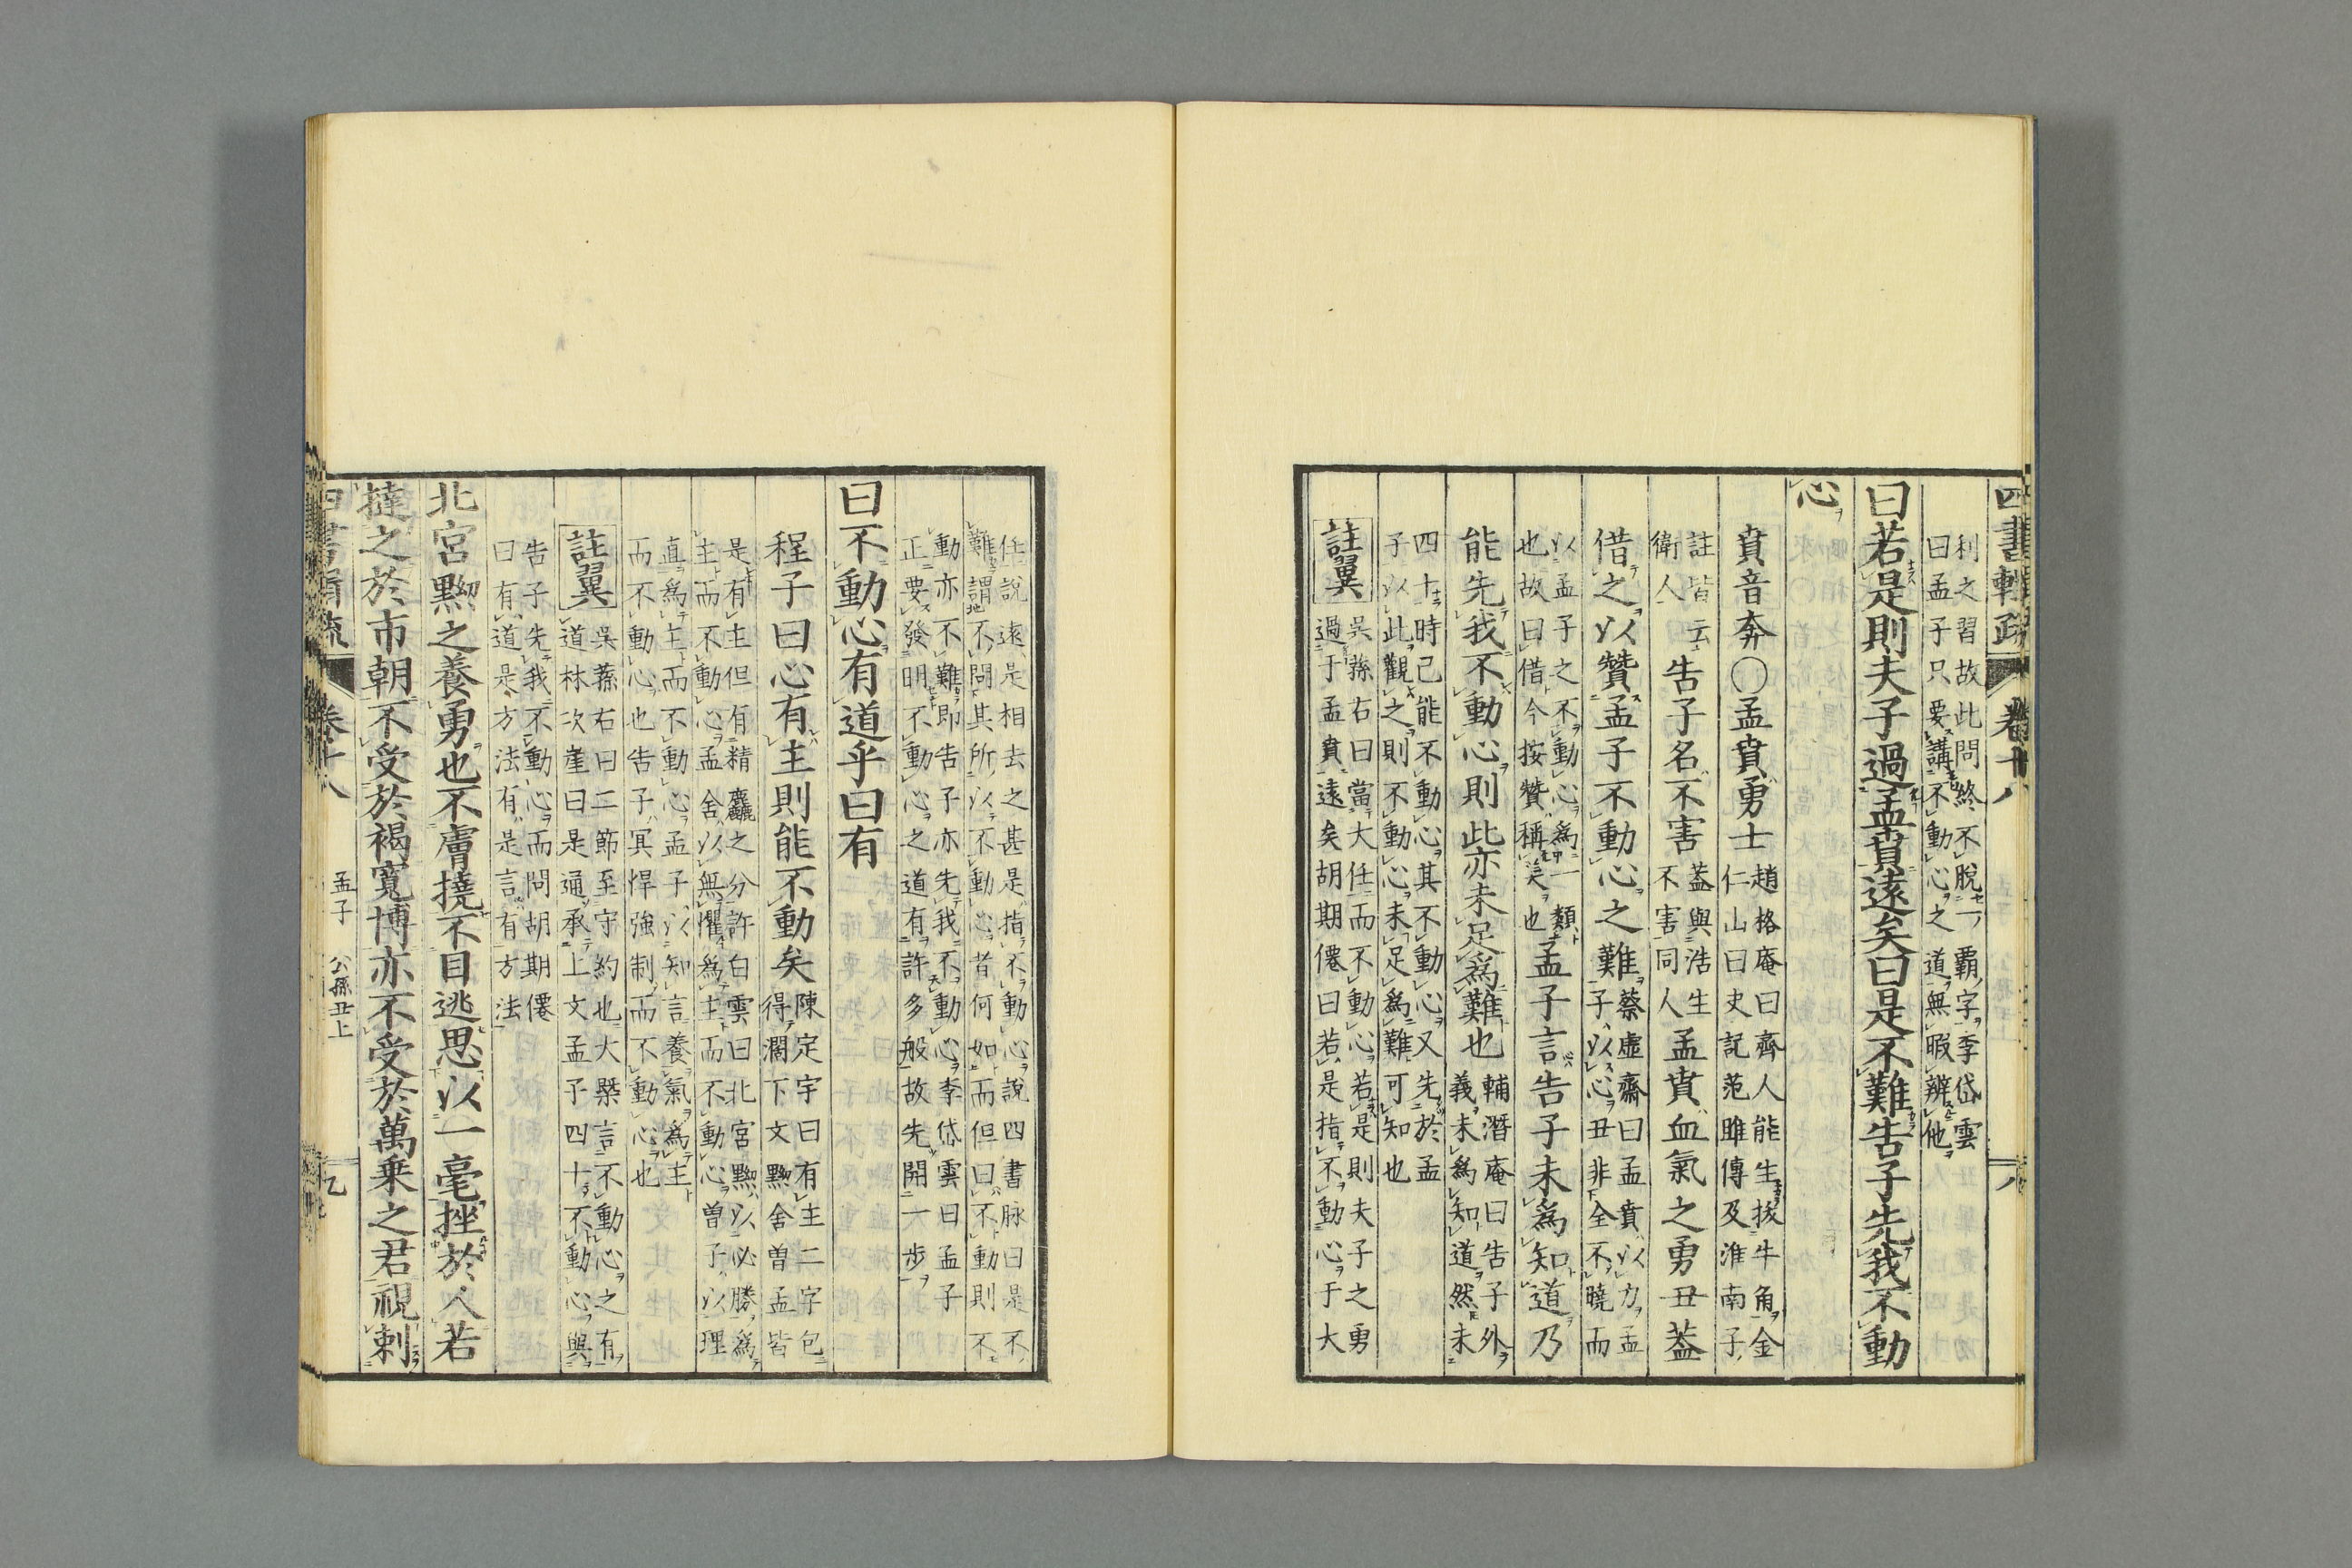 四書輯疏 卷十八 八
利之習故此問終不脫一覇字李岱雲
曰孟子只要講不動心之道無暇辨他
曰若是則夫子過孟賁遠矣曰是不難告子先我不動
心
賁音奔○孟賁勇士趙格庵曰齊人能生拔牛角金
仁山曰史記范雎傳及淮南子
註皆云
衛人告子名不害蓋與浩生
不害同人孟賁血氣之勇丑蓋
借之以贊孟子不動心之難蔡虛齋曰孟賁以力孟
子以心丑非全不曉而
以孟子之不動心為一類
也故曰借今按贊稱美也孟子言告子未為知道乃
能先我不動心則此亦未足為難也輔潛庵曰告子外
義未為知道然未
四十時已能不動心其不動心又先於孟
子以此觀之則不動心未足為難可知也
註翼吳蓀右曰當大任而不動心若是則夫子之勇
過于孟賁遠矣胡期僊曰若是指不動心于大
任說遠是相去之甚是指不動心說四書脉曰是不
難謂不問其所以不動心者何如而但曰不動則不
動亦不難即告子亦先我不動心李岱雲曰孟子
正要發明不動心之道有許多般故先開一步
曰不動心有道乎曰有
程子曰心有主則能不動矣陳定宇曰有主二字包
得濶下文黝舍曽孟皆
是有主但有精麤之分許白雲曰北宮黝以必勝為
主而不動心孟舍以無懼為主而不動心曽子以理
直為主而不動心孟子以知言養氣為主
而不動心也告子冥悍強制而不動心也
註翼吳蓀右曰二節至守約也大槩言不動心之有
道林次崖曰是通承上文孟子四十不動心與
告子先我不動心而問胡期僊
曰有道是方法有是言有方法
北宮黝之養勇也不膚撓不目逃思以一毫挫於人若
撻之於市朝不受於褐寬博亦不受於萬乗之君視刺
四書輯疏 卷十八 孟子 公孫丑上 九